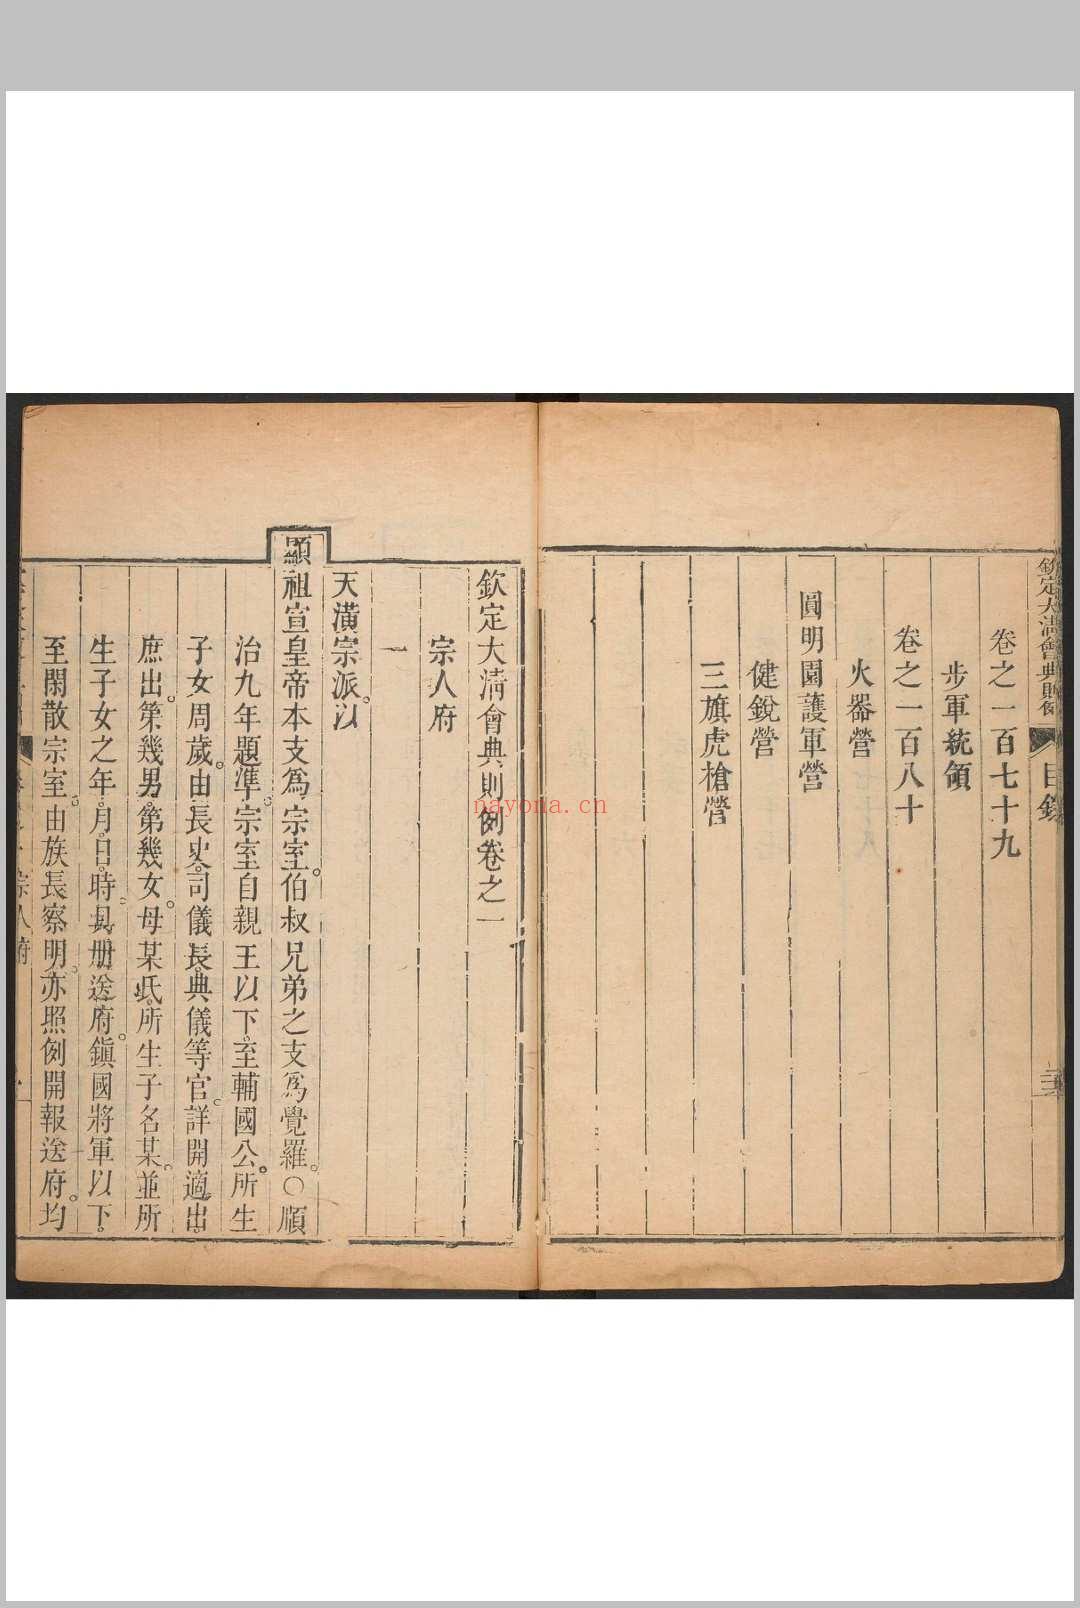 欽定大清會典則例
目錄
卷之一百七十九
步軍統領
卷之一百八十
火器營
圓明園護軍營
健銳營
三旗虎槍營
欽定大清會典則例卷之一
宗人府
一
天潢宗派。以
顯祖宣皇帝本支爲宗室。伯叔兄弟之支爲覺羅。〇順
治九年題準。宗室自親王以下。至輔國公。所生
子女周歲。由長史。司儀長。典儀等官。詳開適出。
庶出。第幾男。第幾女。母某氏。所生子名某。並所
生子女之年。月。日。時。具册送府。鎮國將軍以下。
至閑散宗室。由族長察明。亦照例開報送府。均
宗人府
nayona.cn